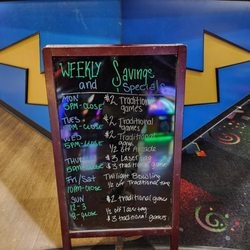 WEEKLY Savings
and Specials
MON $2 Traditional
5PM-CLOSE games
TUES $2 Traditional
5PM-CLOSE games
WED $2 Traditional
5PM-CLOSE games
1/2 off Arcade
THURS $3 Laser Tag
5PM-CLOSE $3 traditional games
Fri/Sat Twilight Bowling
10PM-CLOSE 1/2 off Traditional
SUN $2 traditional games
12-3 1/2 off
8-CLOSE $3 traditional games